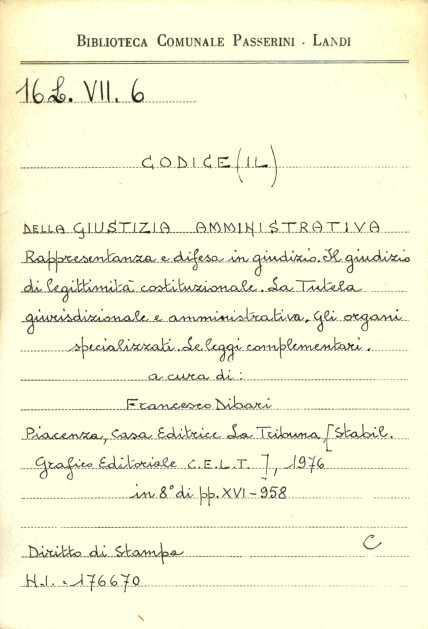 BIBLIOTECA COMUNALE PASSERINI - LANDI
16 L. VII. 6
CODICE (IL)
DELLA GIUSTIZIA AMMINISTRATIVA
Rappresentanza e difesa in giudizio. Il giudizio
di legittimità costituzionale. La Tutela
giurisdizionale e amministrativa. Gli organi
specializzati. Le leggi complementari.
a cura di:
Francesco Dibari
Piacenza, Casa Editrice La Tribuna, [Stabil.
Grafico Editoriale C.E.L.T.], 1976
in 8° di pp. XVI-958
Diritto di Stampa C
N.I. = 176670